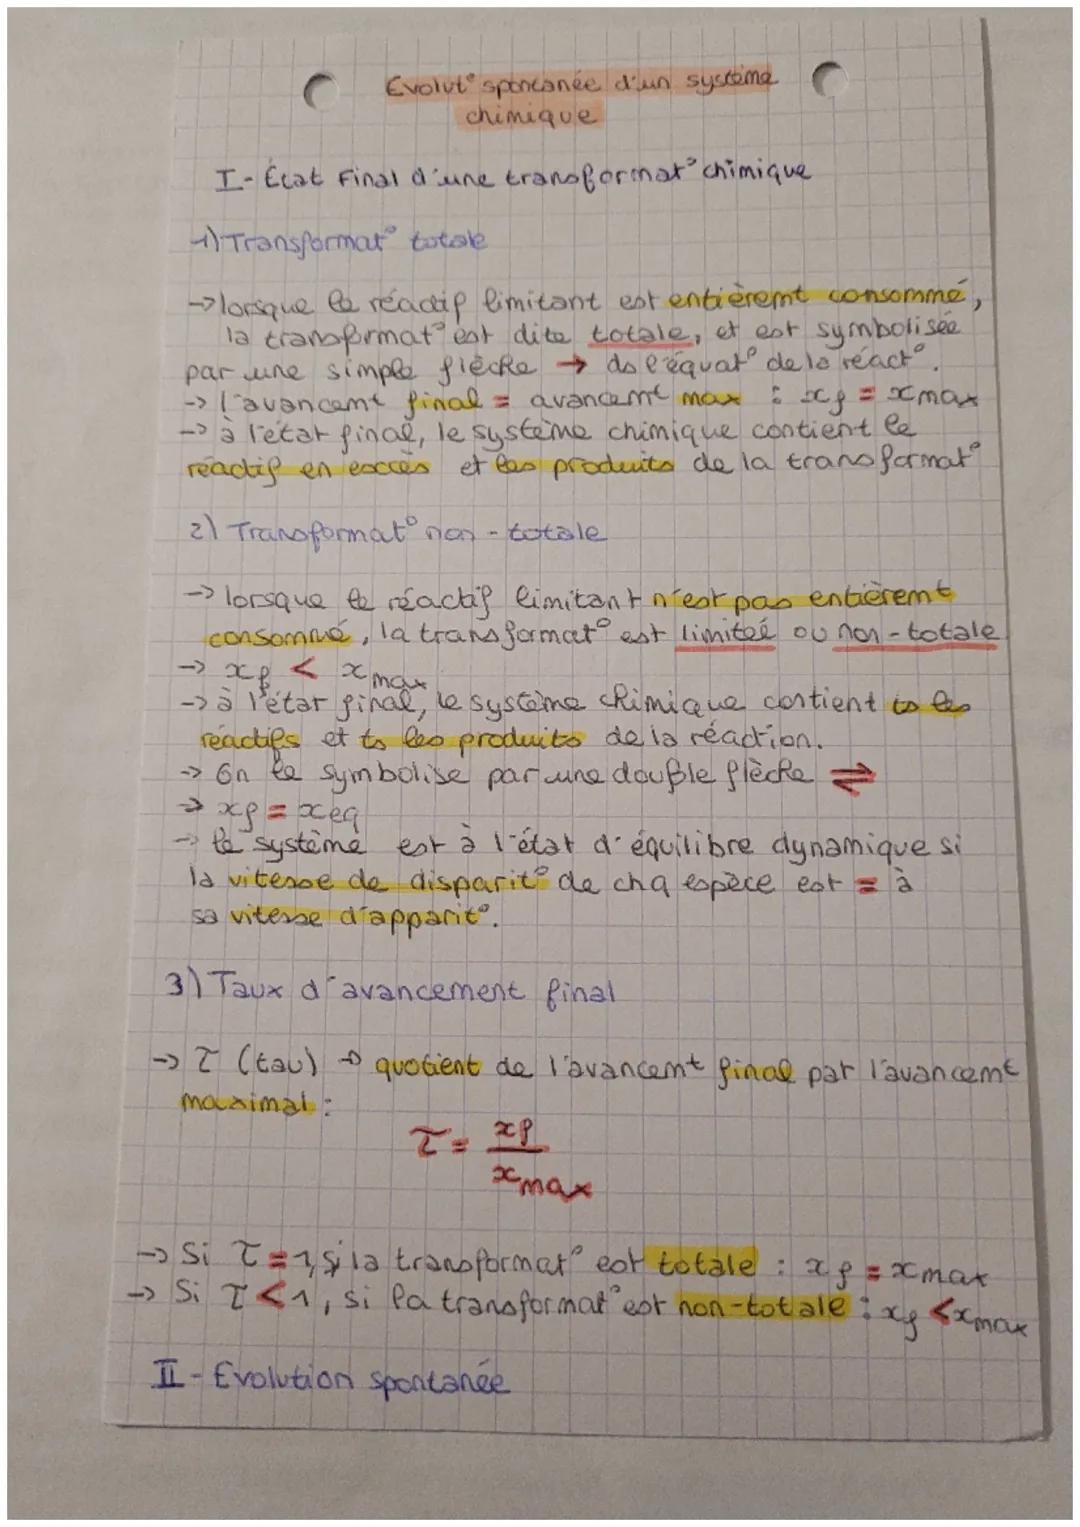 Evolut° spontanée d'un système
chimique
I - État Final d'une transformat° chimique
1) Transformat° totale
-> lorsque le réactif limitant est entièremt consommé,
la transformat° est dite totale, et est symbolisée
par une simple flèche → ds l'équat° de la réact°.
-> l'avancemt final = avancemt max : xf = xmax
-> à l'état final, le système chimique contient le
réactif en excès et les produits de la transformat°
2) Transformat° non-totale
-> lorsque le réactif limitant n'est pas entièremt
consommé, la transformat° est limitée ou non-totale
-> xf < xmax
-> à l'état final, le système chimique contient ts les
réactifs et ts les produits de la réaction.
-> On le symbolise par une double flèche ⇌
-> xf = xeq
-> le système est à l'état d'équilibre dynamique si
la vitesse de disparit° de chq espèce est = à
sa vitesse d'apparit°.
3) Taux d'avancement final
-> τ (tau) → quotient de l'avancemt final par l'avancemt
maximal :
τ = xf / xmax
-> Si τ = 1, si la transformat° est totale : xf = xmax
-> Si τ < 1, si la transformat° est non-totale : xf < xmax
II - Evolution spontanée